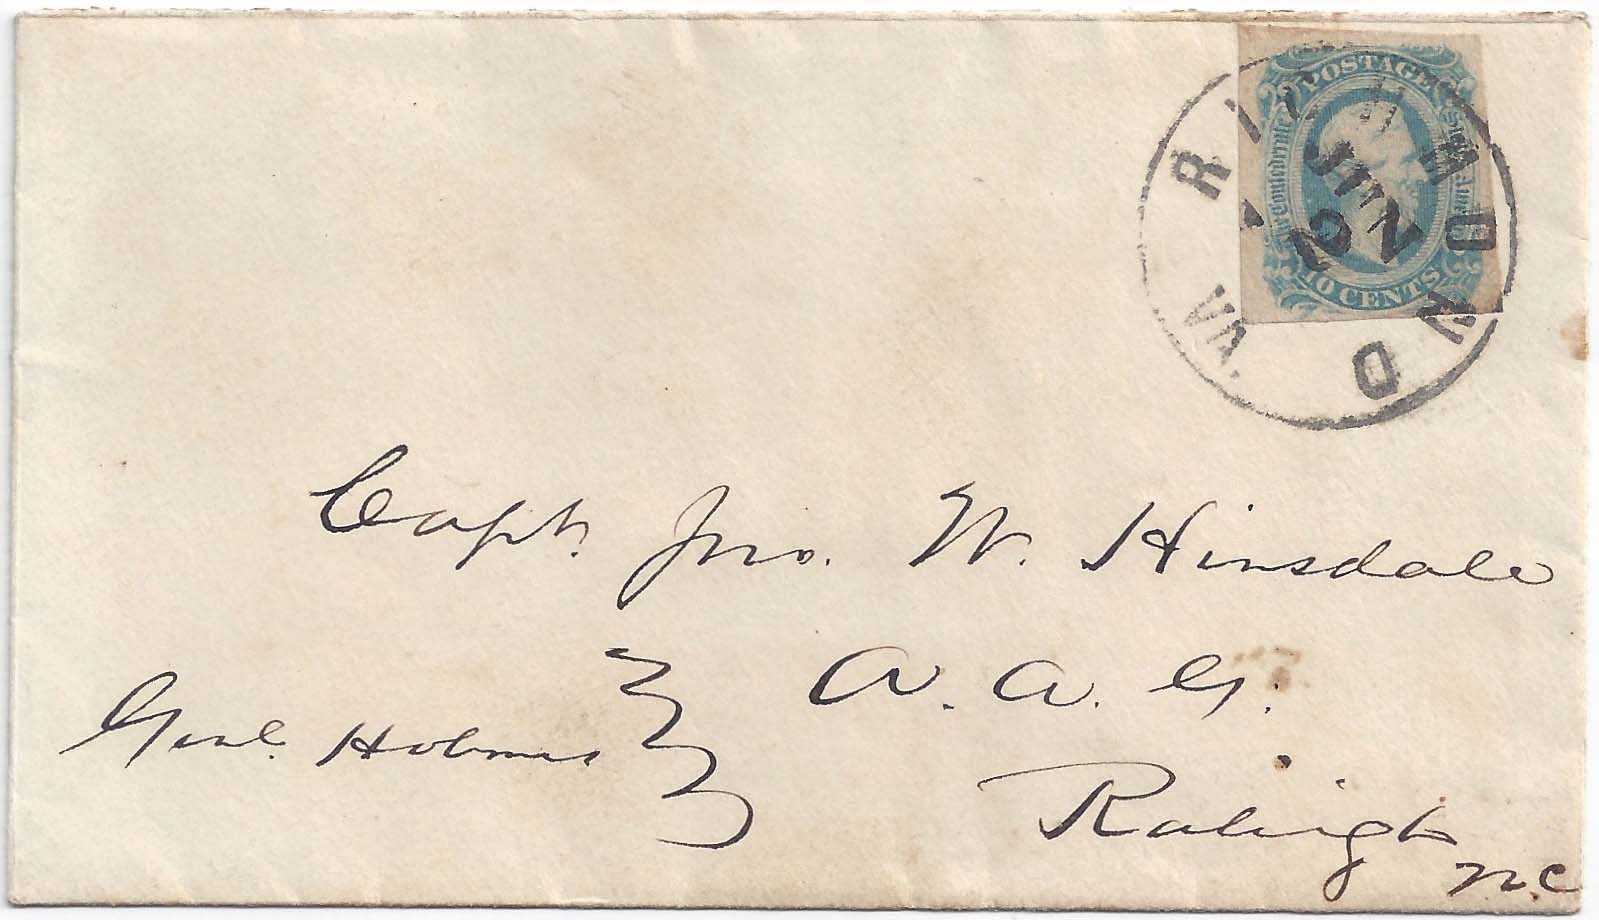 POSTAGE
The Confederate States of America
10 CENTS
RICHMOND VA.
JUN
2
Capt. Jno. W. Hinsdale
A. A. G.
Genl. Holmes
Raleigh
N.C